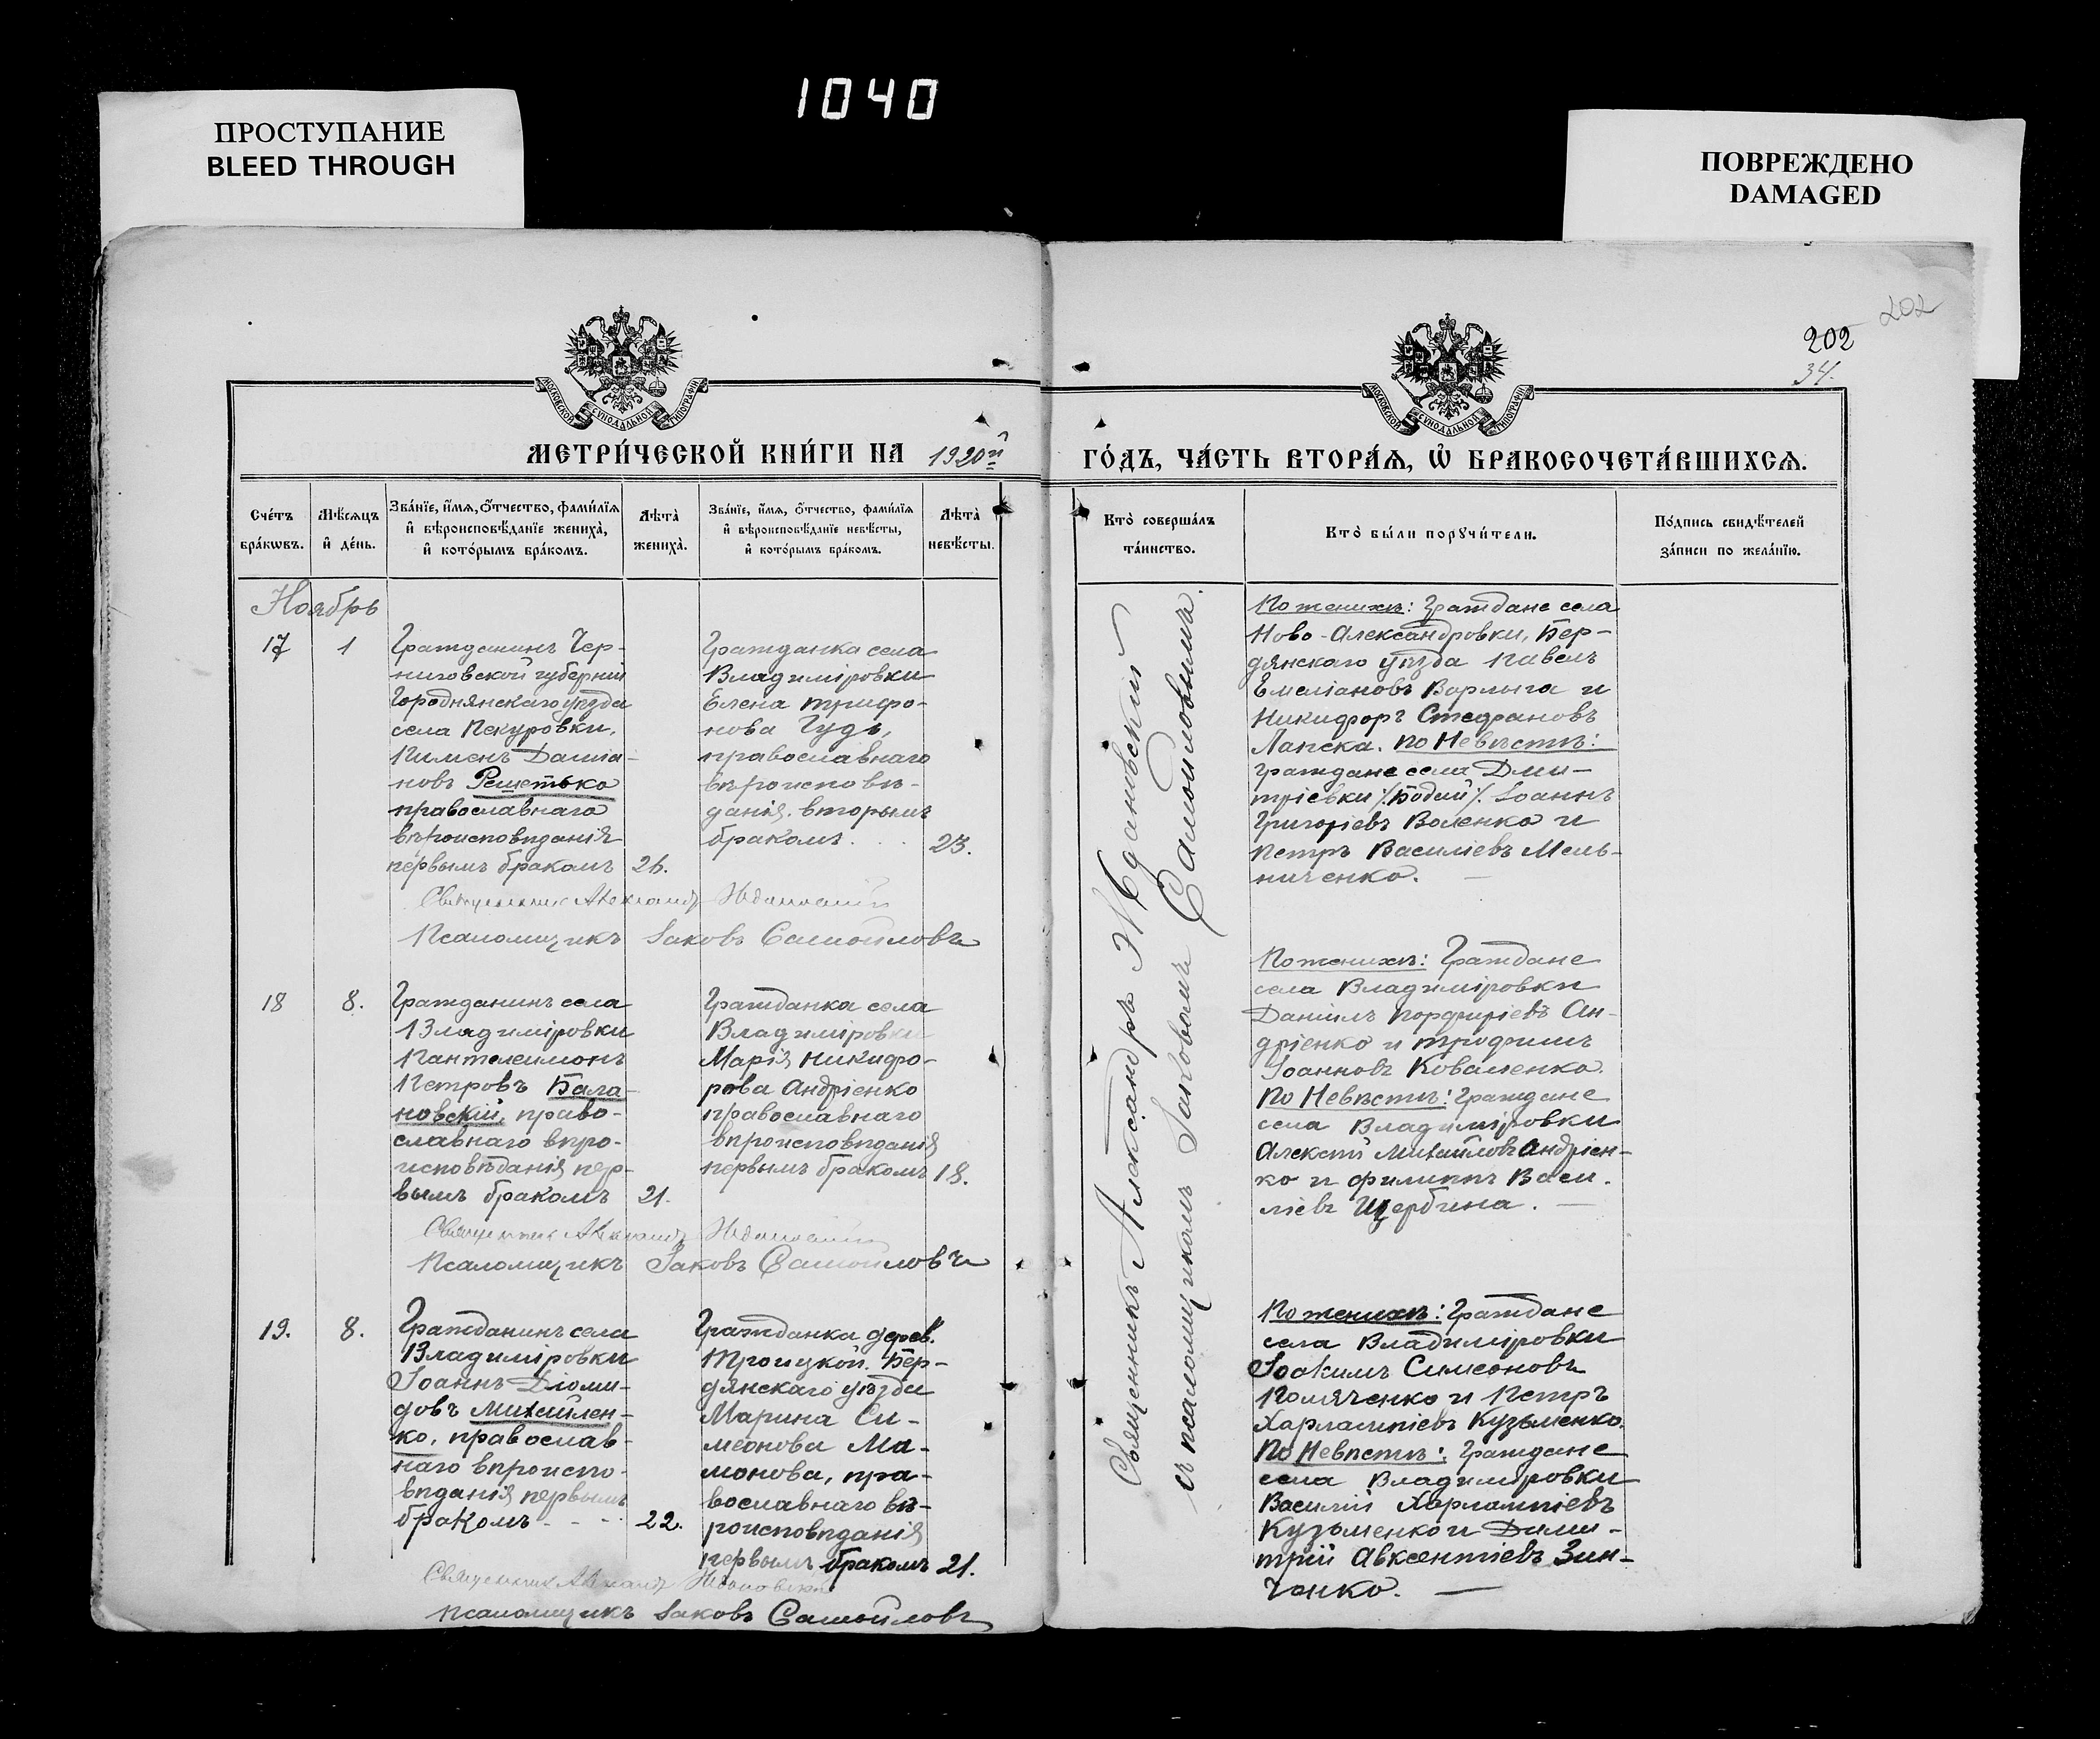 1040
ПРОСТУПАНИЕ
BLEED THROUGH
ПОВРЕЖДЕНО
DAMAGED
202
202
34.
МОСКОВСКОЙ СѴНОДАЛЬНОЙ ТИПОГРАФІИ
МОСКОВСКОЙ СѴНОДАЛЬНОЙ ТИПОГРАФІИ
МЕТРИ́ЧЕСКОЙ КНИ́ГИ НА 1920й
ГО́ДЪ, ЧА́СТЬ ВТОРА́Ѧ, Ѽ БРАКОСОЧЕТА́ВШИХСѦ.
Сче́тъ
бра́кѡвъ.
Мѣ́сѧцъ
и҆ де́нь.
Зва́нїе, и҆́мѧ, ѻ҆́тчество, фами́лїѧ
и҆ вѣроисповѣ́данїе жениха̀,
и҆ кото́рымъ бра́комъ.
Лѣта̀
жениха̀.
Зва́нїе, и҆́мѧ, ѻ҆́тчество, фами́лїѧ
и҆ вѣроисповѣ́данїе невѣ́сты,
и҆ кото́рымъ бра́комъ.
Лѣта̀
невѣ́сты.
Кто̀ соверша́лъ
та́инство.
Кто̀ бы́ли порꙋчи́тели.
По́дпись свидѣ́телей
за́писи по жела́нїю.
Ноябрь
17
1
Гражданинъ Чер-
ниговской губерніи
Городнянскаго уѣзда
села Пекуровки,
Пименъ Даміа-
новъ Решетько
православнаго
вѣроисповѣданія
первымъ бракомъ
26.
Гражданка села
Владиміровки
Елена Трифо-
нова Гудь,
православнаго
вѣроисповѣ-
данія. вторымъ
бракомъ. . .
23.
Священникъ Александр Ждановскій
Псаломщикъ Іаковъ Самойловъ
18
8.
Гражданинъ села
Владиміровки
Пантелеимонъ
Петровъ Бала-
новскій, право-
славнаго вѣро-
исповѣданія пер-
вымъ бракомъ
21.
Гражданка села
Владиміровки
Марія Никифо-
рова Андріенко
православнаго
вѣроисповѣданія
первымъ бракомъ
18.
Священникъ Александр Ждановскій
Псаломщикъ Іаковъ Самойловъ
19.
8.
Гражданинъ села
Владиміровки
Іоаннъ Діоми-
довъ Михайлен-
ко, православ-
наго вѣроиспо-
вѣданія первымъ
бракомъ - - -
22.
Гражданка дерев.
Троицкой. Бер-
дянскаго уѣзда
Марина Си-
меонова Ма-
монова, пра-
вославнаго вѣ-
роисповѣданія
первымъ бракомъ
21.
Священникъ Александр Ждановскій
Псаломщикъ Іаковъ Самойловъ
Священникъ Александръ Ждановскій
съ псаломщикомъ Іаковомъ Самойловымъ.
По женихѣ: Граждане села
Ново-Александровки, Бер-
дянскаго уѣзда Павелъ
Емеліановъ Варлыга и
Никифоръ Стефановъ
Лапска. По Невѣстѣ:
Граждане села Дми-
тріевки /:Бодай:/. Іоаннъ
Григоріевъ Воленко и
Петръ Василіевъ Мель-
ниченко.
По женихѣ: Граждане
села Владиміровки
Даніилъ Порфиріевъ Ан-
дріенко и Трофимъ
Іоанновъ Коваленко.
По Невѣстѣ: Граждане
села Владиміровки
Алексій Михайловъ Андріен-
ко и Филиппъ Васи-
ліевъ Щербина. —
По женихѣ: Граждане
села Владиміровки
Іоакимъ Симеоновъ
Помяченко и Петръ
Харлампіевъ Кузьменко.
По Невѣстѣ: Граждане
села Владиміровки
Василій Харлампіевъ
Кузьменко и Дими-
трій Авксентіевъ Зин-
ченко. —